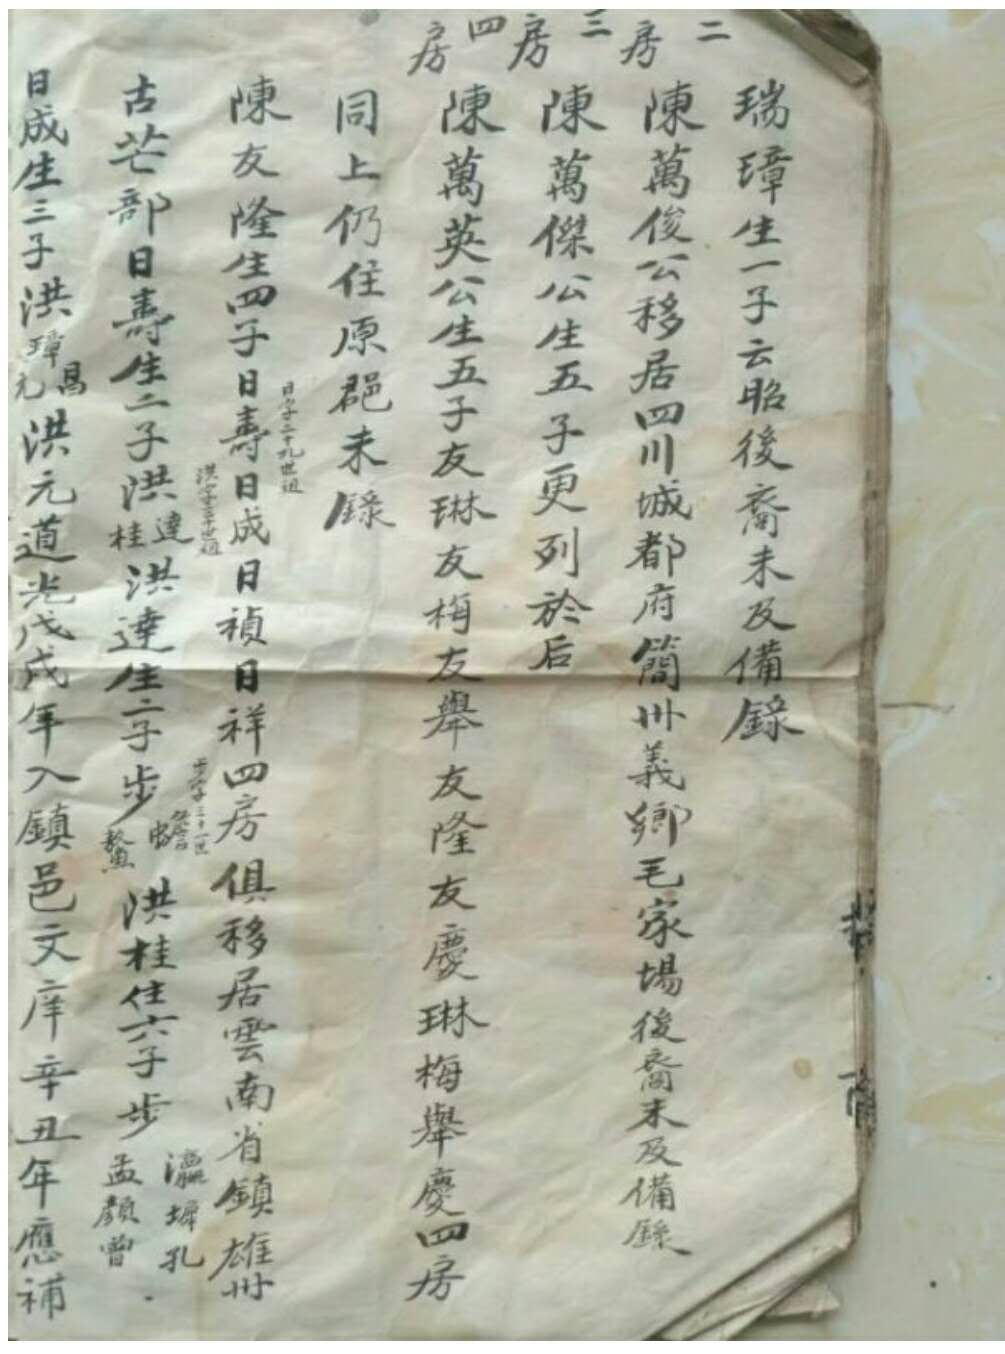 二房
三房
四房
瑞璋生一子云昭後裔未及備錄
陳萬俊公移居四川城都府簡州義鄉毛家場後裔未及備錄
陳萬傑公生五子更列於后
陳萬英公生五子友琳友梅友舉友隆友慶琳梅舉慶四房
同上仍住原邑未錄
陳友隆生四子日壽日成日禎日祥四房俱移居雲南省鎮雄州
日字二十九世祖
洪字三十世祖
步字三十一世
古芒部日壽生二子洪達桂洪達生二子步詹鰲洪桂住六子步瀛墀孔孟顏曾
日成生三子洪璋昌元洪元道光戊戌年入鎮邑文庠辛丑年應補